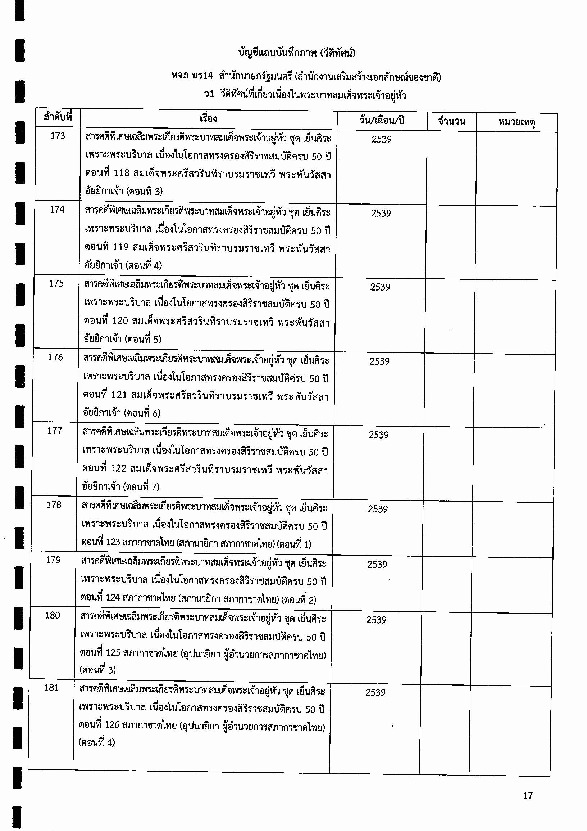 บัญชีแถบบันทึกภาพ (วีดิทัศน์)
หจภ พร14 สำนักนายกรัฐมนตรี (สำนักงานเสริมสร้างเอกลักษณ์ของชาติ)
ว1 วีดิทัศน์ที่เกี่ยวเนื่องในพระบาทสมเด็จพระเจ้าอยู่หัว
ลำดับที่ เรื่อง วัน/เดือน/ปี จำนวน หมายเหตุ
173 สารคดีพิเศษเฉลิมพระเกียรติพระบาทสมเด็จพระเจ้าอยู่หัว ชุด เย็นศิระ 2539
เพราะพระบริบาล เนื่องในโอกาสทรงครองสิริราชสมบัติครบ 50 ปี
ตอนที่ 118 สมเด็จพระศรีสวรินทิราบรมราชเทวี พระพันวัสสา
อัยยิกาเจ้า (ตอนที่ 3)
174 สารคดีพิเศษเฉลิมพระเกียรติพระบาทสมเด็จพระเจ้าอยู่หัว ชุด เย็นศิระ 2539
เพราะพระบริบาล เนื่องในโอกาสทรงครองสิริราชสมบัติครบ 50 ปี
ตอนที่ 119 สมเด็จพระศรีสวรินทิราบรมราชเทวี พระพันวัสสา
อัยยิกาเจ้า (ตอนที่ 4)
175 สารคดีพิเศษเฉลิมพระเกียรติพระบาทสมเด็จพระเจ้าอยู่หัว ชุด เย็นศิระ 2539
เพราะพระบริบาล เนื่องในโอกาสทรงครองสิริราชสมบัติครบ 50 ปี
ตอนที่ 120 สมเด็จพระศรีสวรินทิราบรมราชเทวี พระพันวัสสา
อัยยิกาเจ้า (ตอนที่ 5)
176 สารคดีพิเศษเฉลิมพระเกียรติพระบาทสมเด็จพระเจ้าอยู่หัว ชุด เย็นศิระ 2539
เพราะพระบริบาล เนื่องในโอกาสทรงครองสิริราชสมบัติครบ 50 ปี
ตอนที่ 121 สมเด็จพระศรีสวรินทิราบรมราชเทวี พระพันวัสสา
อัยยิกาเจ้า (ตอนที่ 6)
177 สารคดีพิเศษเฉลิมพระเกียรติพระบาทสมเด็จพระเจ้าอยู่หัว ชุด เย็นศิระ 2539
เพราะพระบริบาล เนื่องในโอกาสทรงครองสิริราชสมบัติครบ 50 ปี
ตอนที่ 122 สมเด็จพระศรีสวรินทิราบรมราชเทวี พระพันวัสสา
อัยยิกาเจ้า (ตอนที่ 7)
178 สารคดีพิเศษเฉลิมพระเกียรติพระบาทสมเด็จพระเจ้าอยู่หัว ชุด เย็นศิระ 2539
เพราะพระบริบาล เนื่องในโอกาสทรงครองสิริราชสมบัติครบ 50 ปี
ตอนที่ 123 สภากาชาดไทย (สภานายิกา สภากาชาดไทย) (ตอนที่ 1)
179 สารคดีพิเศษเฉลิมพระเกียรติพระบาทสมเด็จพระเจ้าอยู่หัว ชุด เย็นศิระ 2539
เพราะพระบริบาล เนื่องในโอกาสทรงครองสิริราชสมบัติครบ 50 ปี
ตอนที่ 124 สภากาชาดไทย (สภานายิกา สภากาชาดไทย) (ตอนที่ 2)
180 สารคดีพิเศษเฉลิมพระเกียรติพระบาทสมเด็จพระเจ้าอยู่หัว ชุด เย็นศิระ 2539
เพราะพระบริบาล เนื่องในโอกาสทรงครองสิริราชสมบัติครบ 50 ปี
ตอนที่ 125 สภากาชาดไทย (อุปนายิกา ผู้อำนวยการสภากาชาดไทย)
(ตอนที่ 3)
181 สารคดีพิเศษเฉลิมพระเกียรติพระบาทสมเด็จพระเจ้าอยู่หัว ชุด เย็นศิระ 2539
เพราะพระบริบาล เนื่องในโอกาสทรงครองสิริราชสมบัติครบ 50 ปี
ตอนที่ 126 สภากาชาดไทย (อุปนายิกา ผู้อำนวยการสภากาชาดไทย)
(ตอนที่ 4)
17